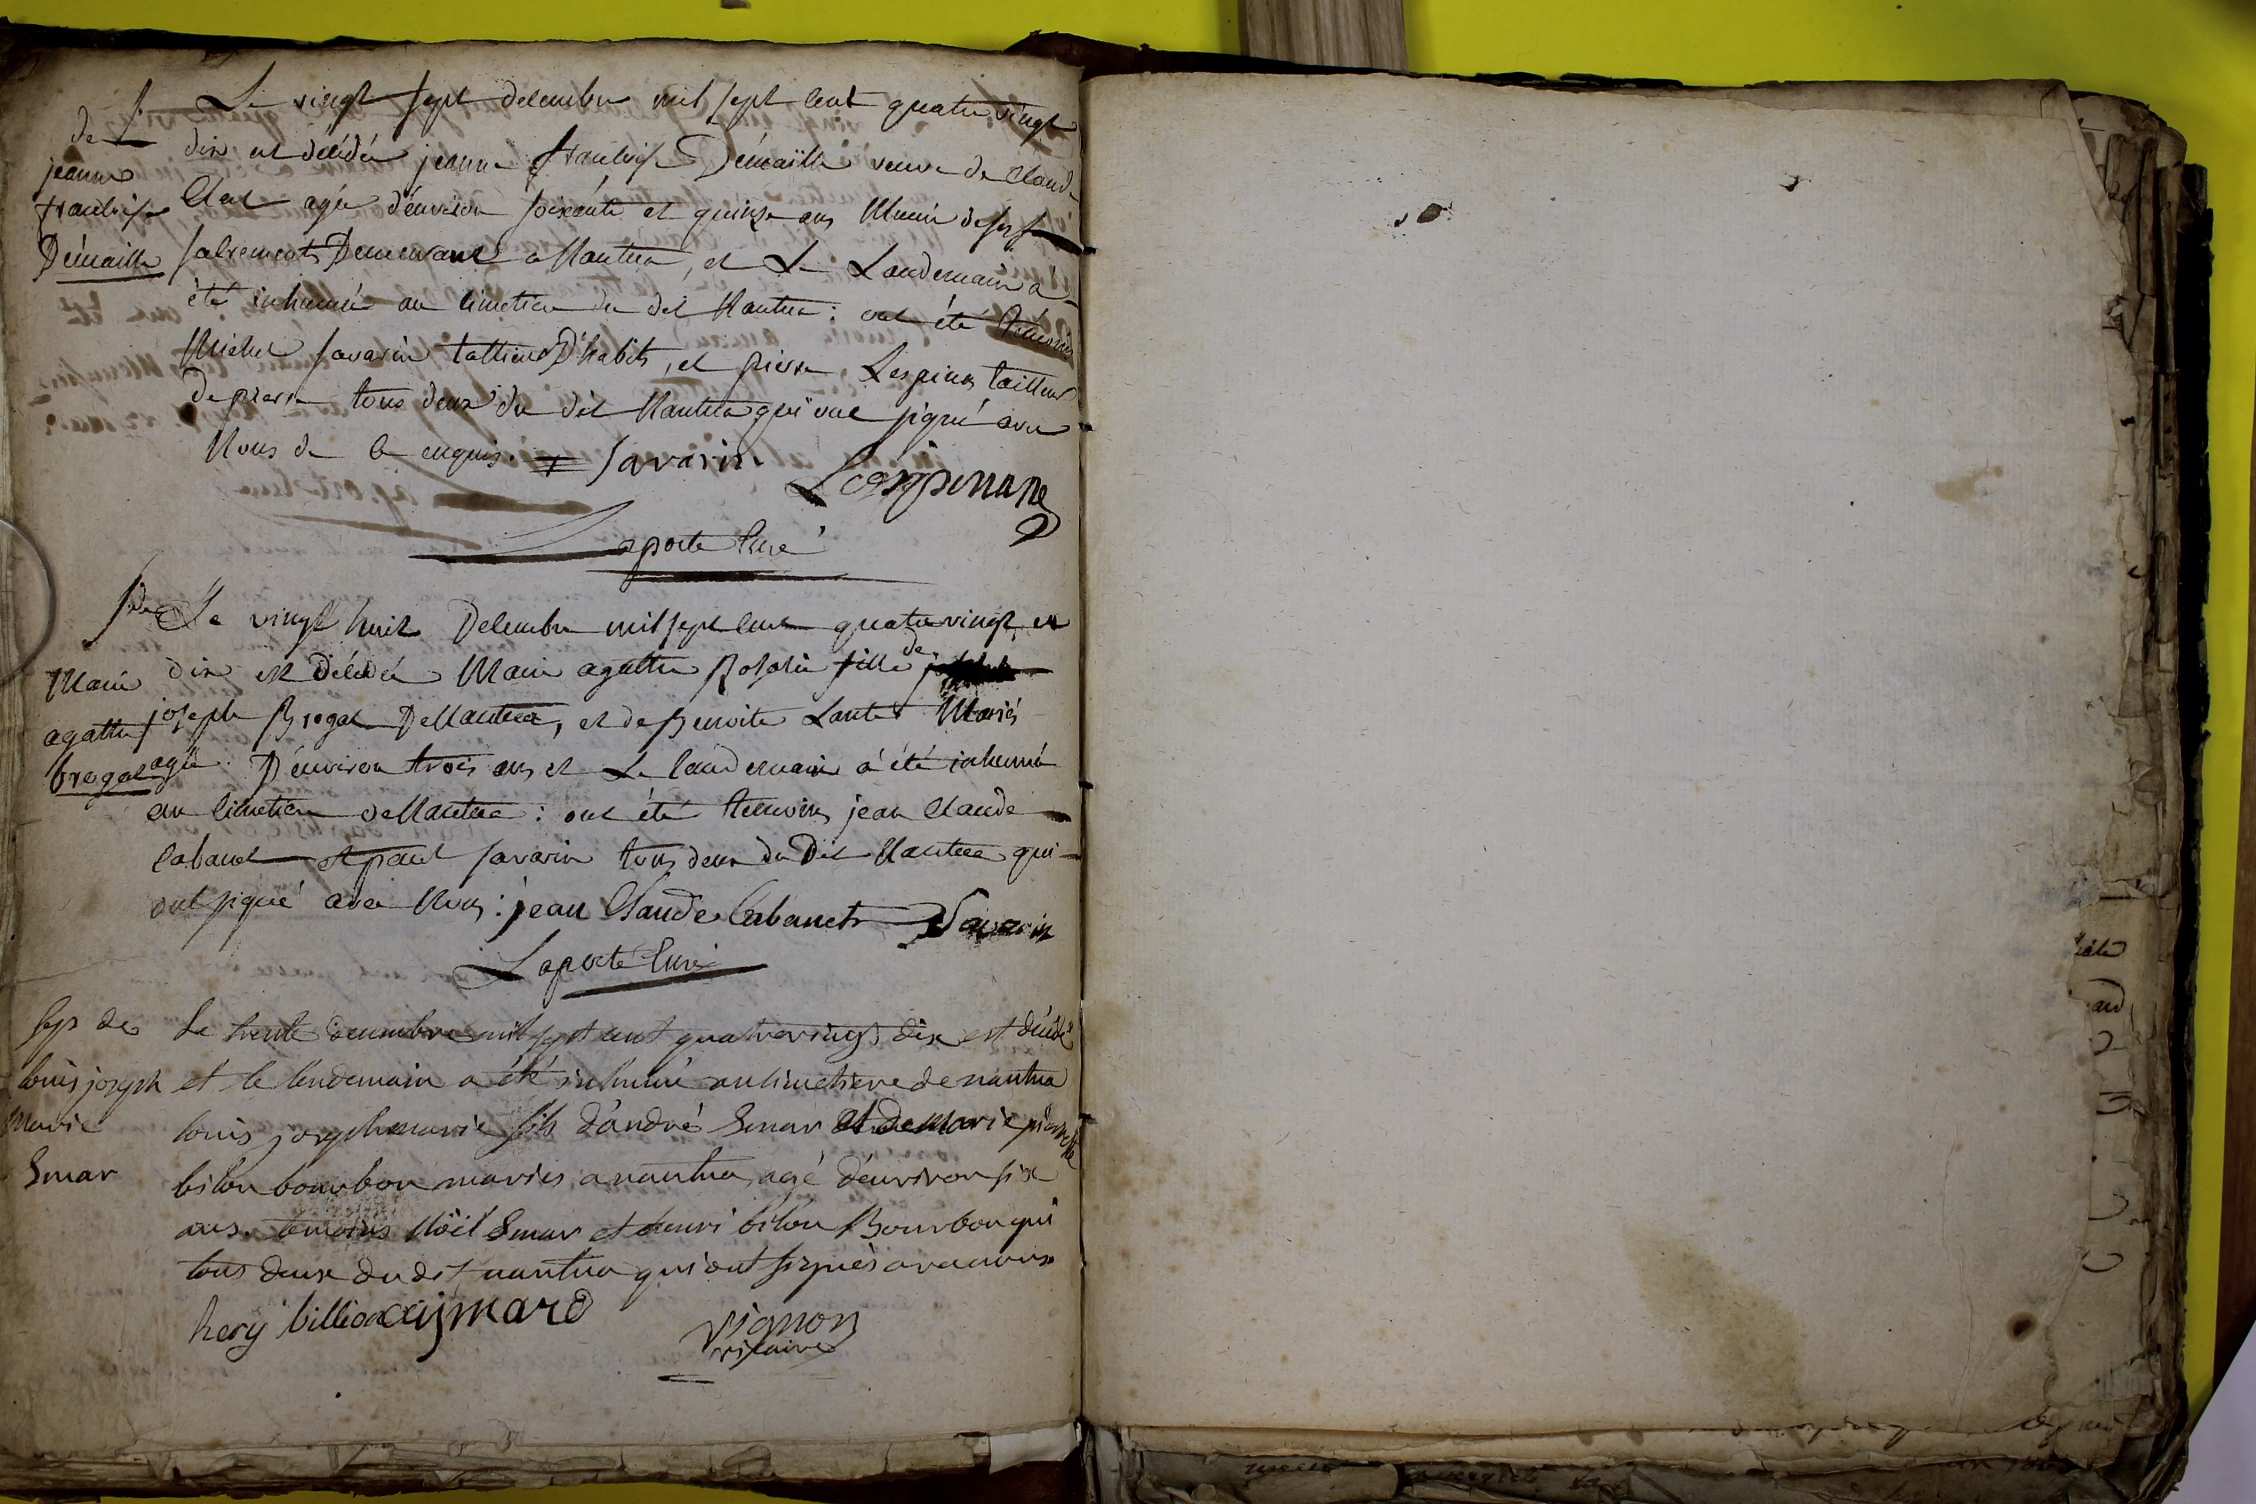 Le vingt sept decembre mil sept cent quatre vingt
dix est décédée jeanne francoise Démaille veuve de Claude
agée d'environ soixante et quinze ans Munie de ses
sacrements Demeurant a Nantua, et Le Landemain a
été inhumée au cimetiere du dit Nantua : ont été témoins
Michel savarin tallieur D'habits, et pierre Lespinas tailleur
de pierre tous deux du dit Nantua qui ont signé avec
Nous de ce enquis. savarin
Laporte Curé
de
jeanne
francoise
Démaille
Le vingt huit Decembre mil sept cent quatre vingt et
dix est Décédée Marie agathe Rosalie fille de
joseph Brogat De Nantua, et de Benoite Lantet Mariés
agée D'environ trois ans et Le landemain a été inhumée
au cimetiere de Nantua : ont été temoins jean Claude
Cabanet et paul savarin tous deux du Dit Nantua qui
ont signé avec Nous : jean Claude Cabanet Savarin
Laporte Curé
Marie
agathe
brogat
Le trente decembre mil sept cent quatre vingt dix est décédé
et le lendemain a été inhumé au cimetiere de nantua
louis joseph marie fils d'andré Emar et de Marie pierrette
bilon bourbon mariés a nantua, agé d'environ six
ans. temoins Noël Emar et henri bilon Bourbon qui
tous deux du dit nantua qui ont signés avec nous
hery billion aymard
vignon
vicaire
sep de
louis joseph
Marie
Emar